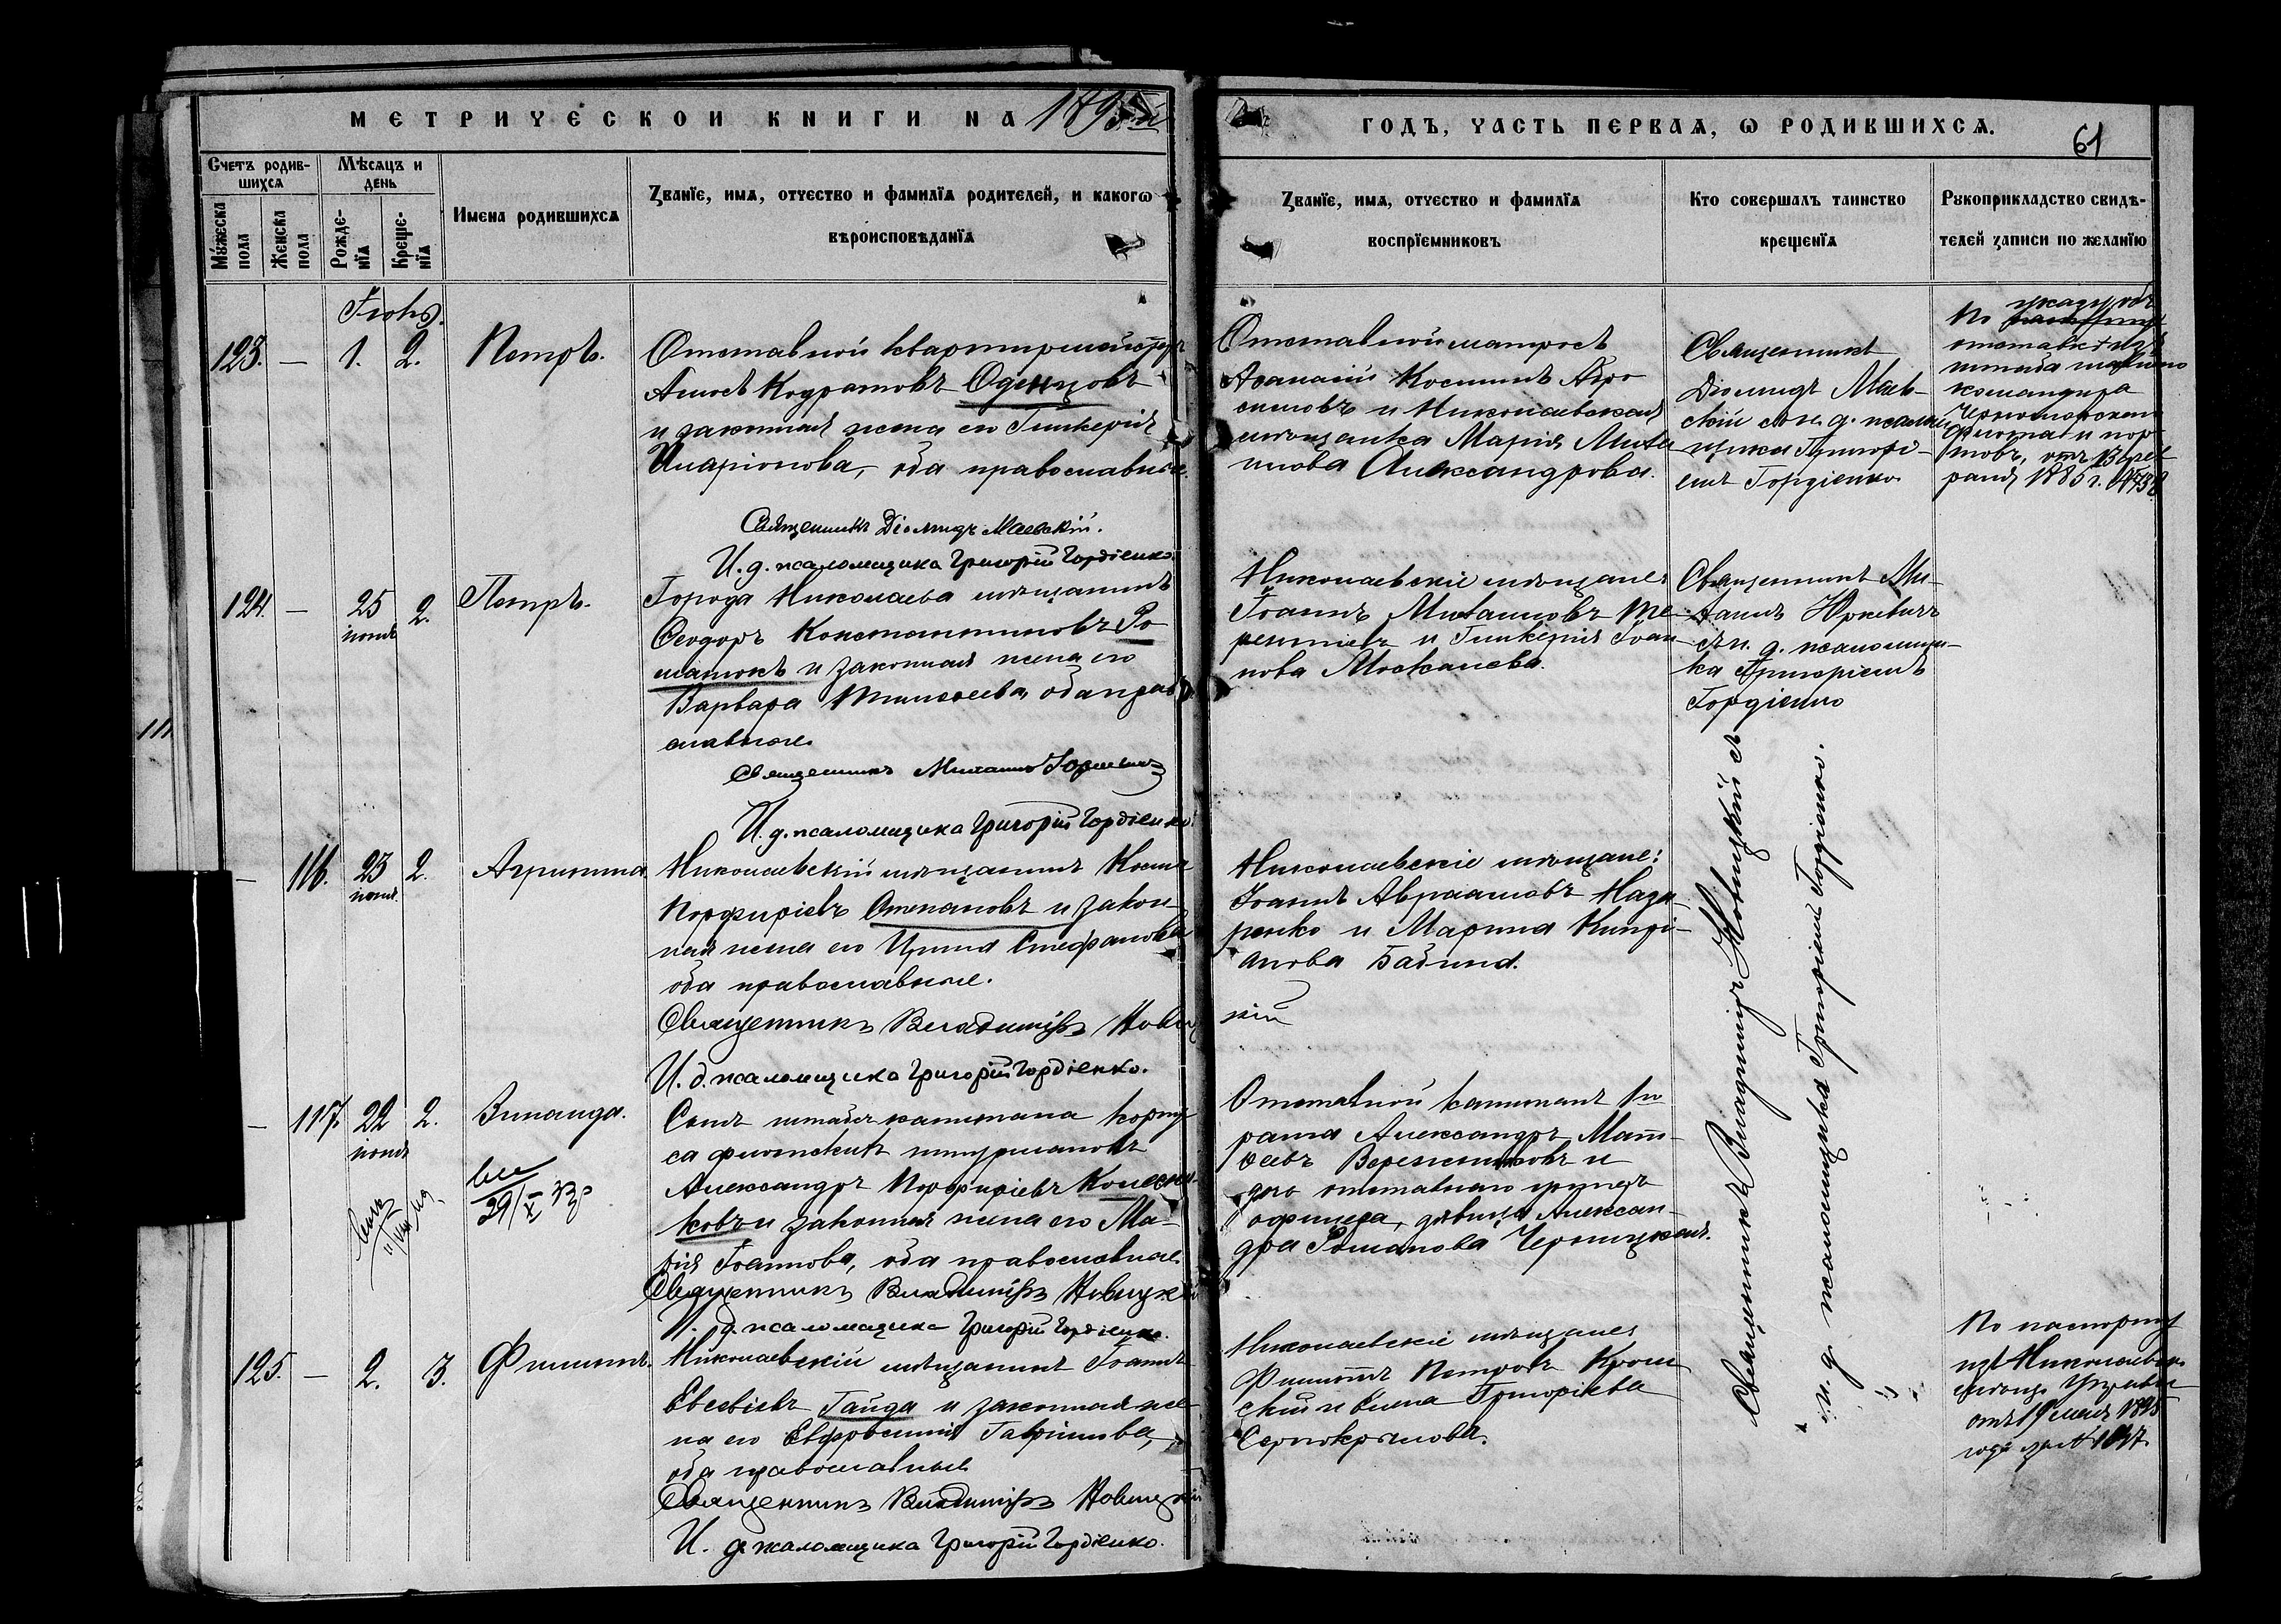 МЕТРИЧЕСКОЙ КНИГИ НА 1895й
ГОДЪ, ЧАСТЬ ПЕРВАЯ, Ѡ РОДИВШИХСЯ.
61
Счетъ родив-
шихся
Мѣсяцъ и
день
Мужеска
пола
Женска
пола
Рожде-
нїя
Креще-
нїя
Имена родившихся
Званїе, имя, отчество и фамилїя родителей, и какогѡ
вѣроисповѣданїя
Званїе, имя, отчество и фамилїя
воспрїемниковъ
Кто совершалъ таинство
крещенїя
Рукоприкладство свидѣ-
телей записи по желанїю
123. — 1. 2. Петръ.
Отставной квартирмейстеръ
Амосъ Кодратовъ Оденцовъ
и законная жена его Гликерія
Иларіонова, оба православные.
Священникъ Діомидъ Маевскій.
И. д. псаломщика Григорій Гордіенко.
Отставной матросъ
Аѳанасій Косминъ
и Николаевская
мѣщанка Марія Миха
илова Александрова.
Священникъ
Діомидъ Маев-
скій съ и. д. псалом
щика Григорі-
емъ Гордіенко
По указу объ
отставкѣ изъ
штаба
командира
Черноморскаго
флота и пор-
товъ, отъ 13 фев
раля 1885 г.
124. — 25 іюня 2. Петръ.
Города Николаева мѣщанинъ
Ѳеодоръ Константиновъ Ро
манюкъ и законная жена его
Варвара Тимоѳеева, оба право
славные.
Священникъ Михаилъ Юркевичъ
И. д. псаломщика Григорій Гордіенко.
Николаевскіе мѣщане:
Іоаннъ Михаиловъ Те-
рентіевъ и Гликерія Іоан
нова Москалева.
Священникъ Ми-
хаилъ Юркевичъ
съ и. д. псаломщи-
ка Григоріемъ
Гордіенко
— 116. 23 іюня 2. Агрипина
Николаевскій мѣщанинъ Косма
Порфиріевъ Степановъ и закон
ная жена его Ирина Стефанова
оба православные.
Священникъ Владиміръ Новиц
кій
И. д. псаломщика Григорій Гордіенко.
Николаевскіе мѣщане:
Іоаннъ Авраамовъ Наза
ренко и Марина Кипрі-
анова Бабина.
Священникъ Владиміръ Новицкій съ
и. д. псаломщика Григоріемъ Гордіенко.
— 117. 22 іюня 2. Зинаида.
29/X
Сынъ штабсъ капитана корпу
са флотскихъ штурмановъ
Александръ Порфиріевъ Колесни
ковъ и законная жена его Ма-
рія Іоаннова, оба православные
Священникъ Владиміръ Новицкій
И. д. псаломщика Григорій Гордіенко.
Отставной капитанъ 1го
ранга Александръ Матѳ-
ѳевъ и
дочь отставного унтеръ
офицера, дѣвица Алексан-
дра Романова Черницкая.
125. — 2. 3. Филиппъ.
Николаевскій мѣщанинъ Іоаннъ
Евсевіевъ Гайда и законная же
на его Евфросинія Гавріилова,
оба православные
Священникъ Владиміръ Новицкій
И. д. псаломщика Григорій Гордіенко.
Николаевскіе мѣщане:
Филиппъ Петровъ
скій и Елена Григоріева
Серпокрылова.
По паспорту
изъ Николаевск.
мѣщ. Управы
отъ 19 мая 1895
года за № 1617.